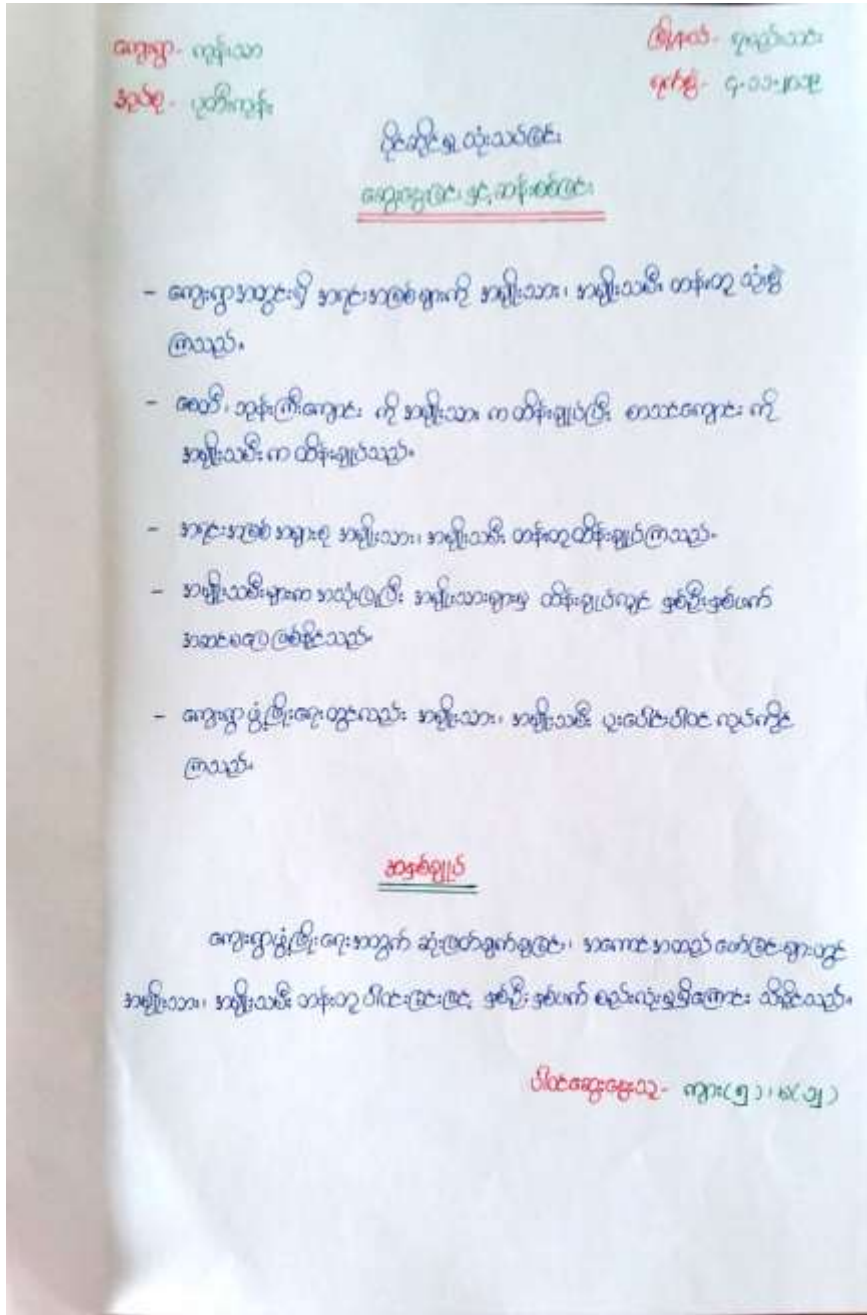 ကျေးရွာ- ကွန်းသာ မြို့နယ်- ရေစည်းသင်း
အုပ်စု- ပုတီးကုန်း ရက်စွဲ- ၄-၁၁-၂၀၁၉
ပိုင်ဆိုင်မှု သုံးသပ်ခြင်း
ဆွေးနွေးခြင်း နှင့် ဆန်းစစ်ခြင်း
- ကျေးရွာအတွင်းရှိ အရင်းအမြစ်များကို အမျိုးသား၊ အမျိုးသမီး တန်းတူ သုံးစွဲ
ကြသည်။
- စေတီ၊ ဘုန်းကြီးကျောင်း ကို အမျိုးသား က ထိန်းချုပ်ပြီး စာသင်ကျောင်း ကို
အမျိုးသမီး က ထိန်းချုပ်သည်။
- အရင်းအမြစ် အများစု အမျိုးသား၊ အမျိုးသမီး တန်းတူထိန်းချုပ်ကြသည်။
- အမျိုးသမီးများက အသုံးပြုပြီး အမျိုးသားများမှ ထိန်းချုပ်လျှင် နှစ်ဦးနှစ်ဖက်
အဆင်မပြေ ဖြစ်နိုင်သည်။
- ကျေးရွာ ဖွံ့ဖြိုးရေး တွင်လည်း အမျိုးသား၊ အမျိုးသမီး ပူးပေါင်းပါဝင် လုပ်ကိုင်
ကြသည်။
အနှစ်ချုပ်
ကျေးရွာဖွံ့ဖြိုးရေးအတွက် ဆုံးဖြတ်ချက်ချခြင်း၊ အကောင်အထည်ဖော်ခြင်းများတွင်
အမျိုးသား၊ အမျိုးသမီး တန်းတူ ပါဝင်ခြင်းဖြင့် နှစ်ဦး နှစ်ဖက် စည်းလုံးမှုရှိကြောင်း သိနိုင်သည်။
ပါဝင်ဆွေးနွေးသူ- ကျား(၅)၊ မ(၁၂)